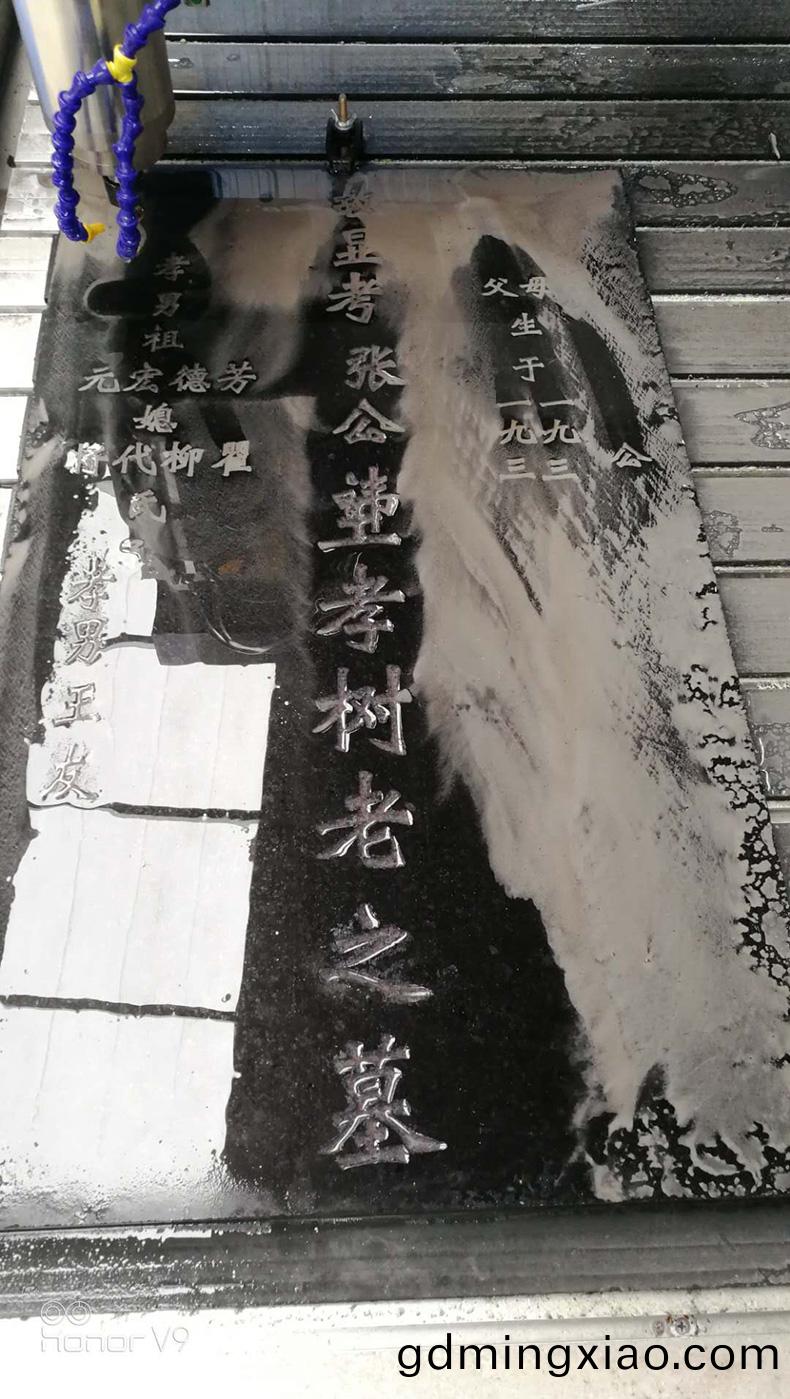 父母
生
于
一九三 一九三
公
显考 张公
孝树老之墓
孝男
祖
元宏德芳
媳
代柳瞿
氏
孝男王友
honor V9
gdmingxiao.com